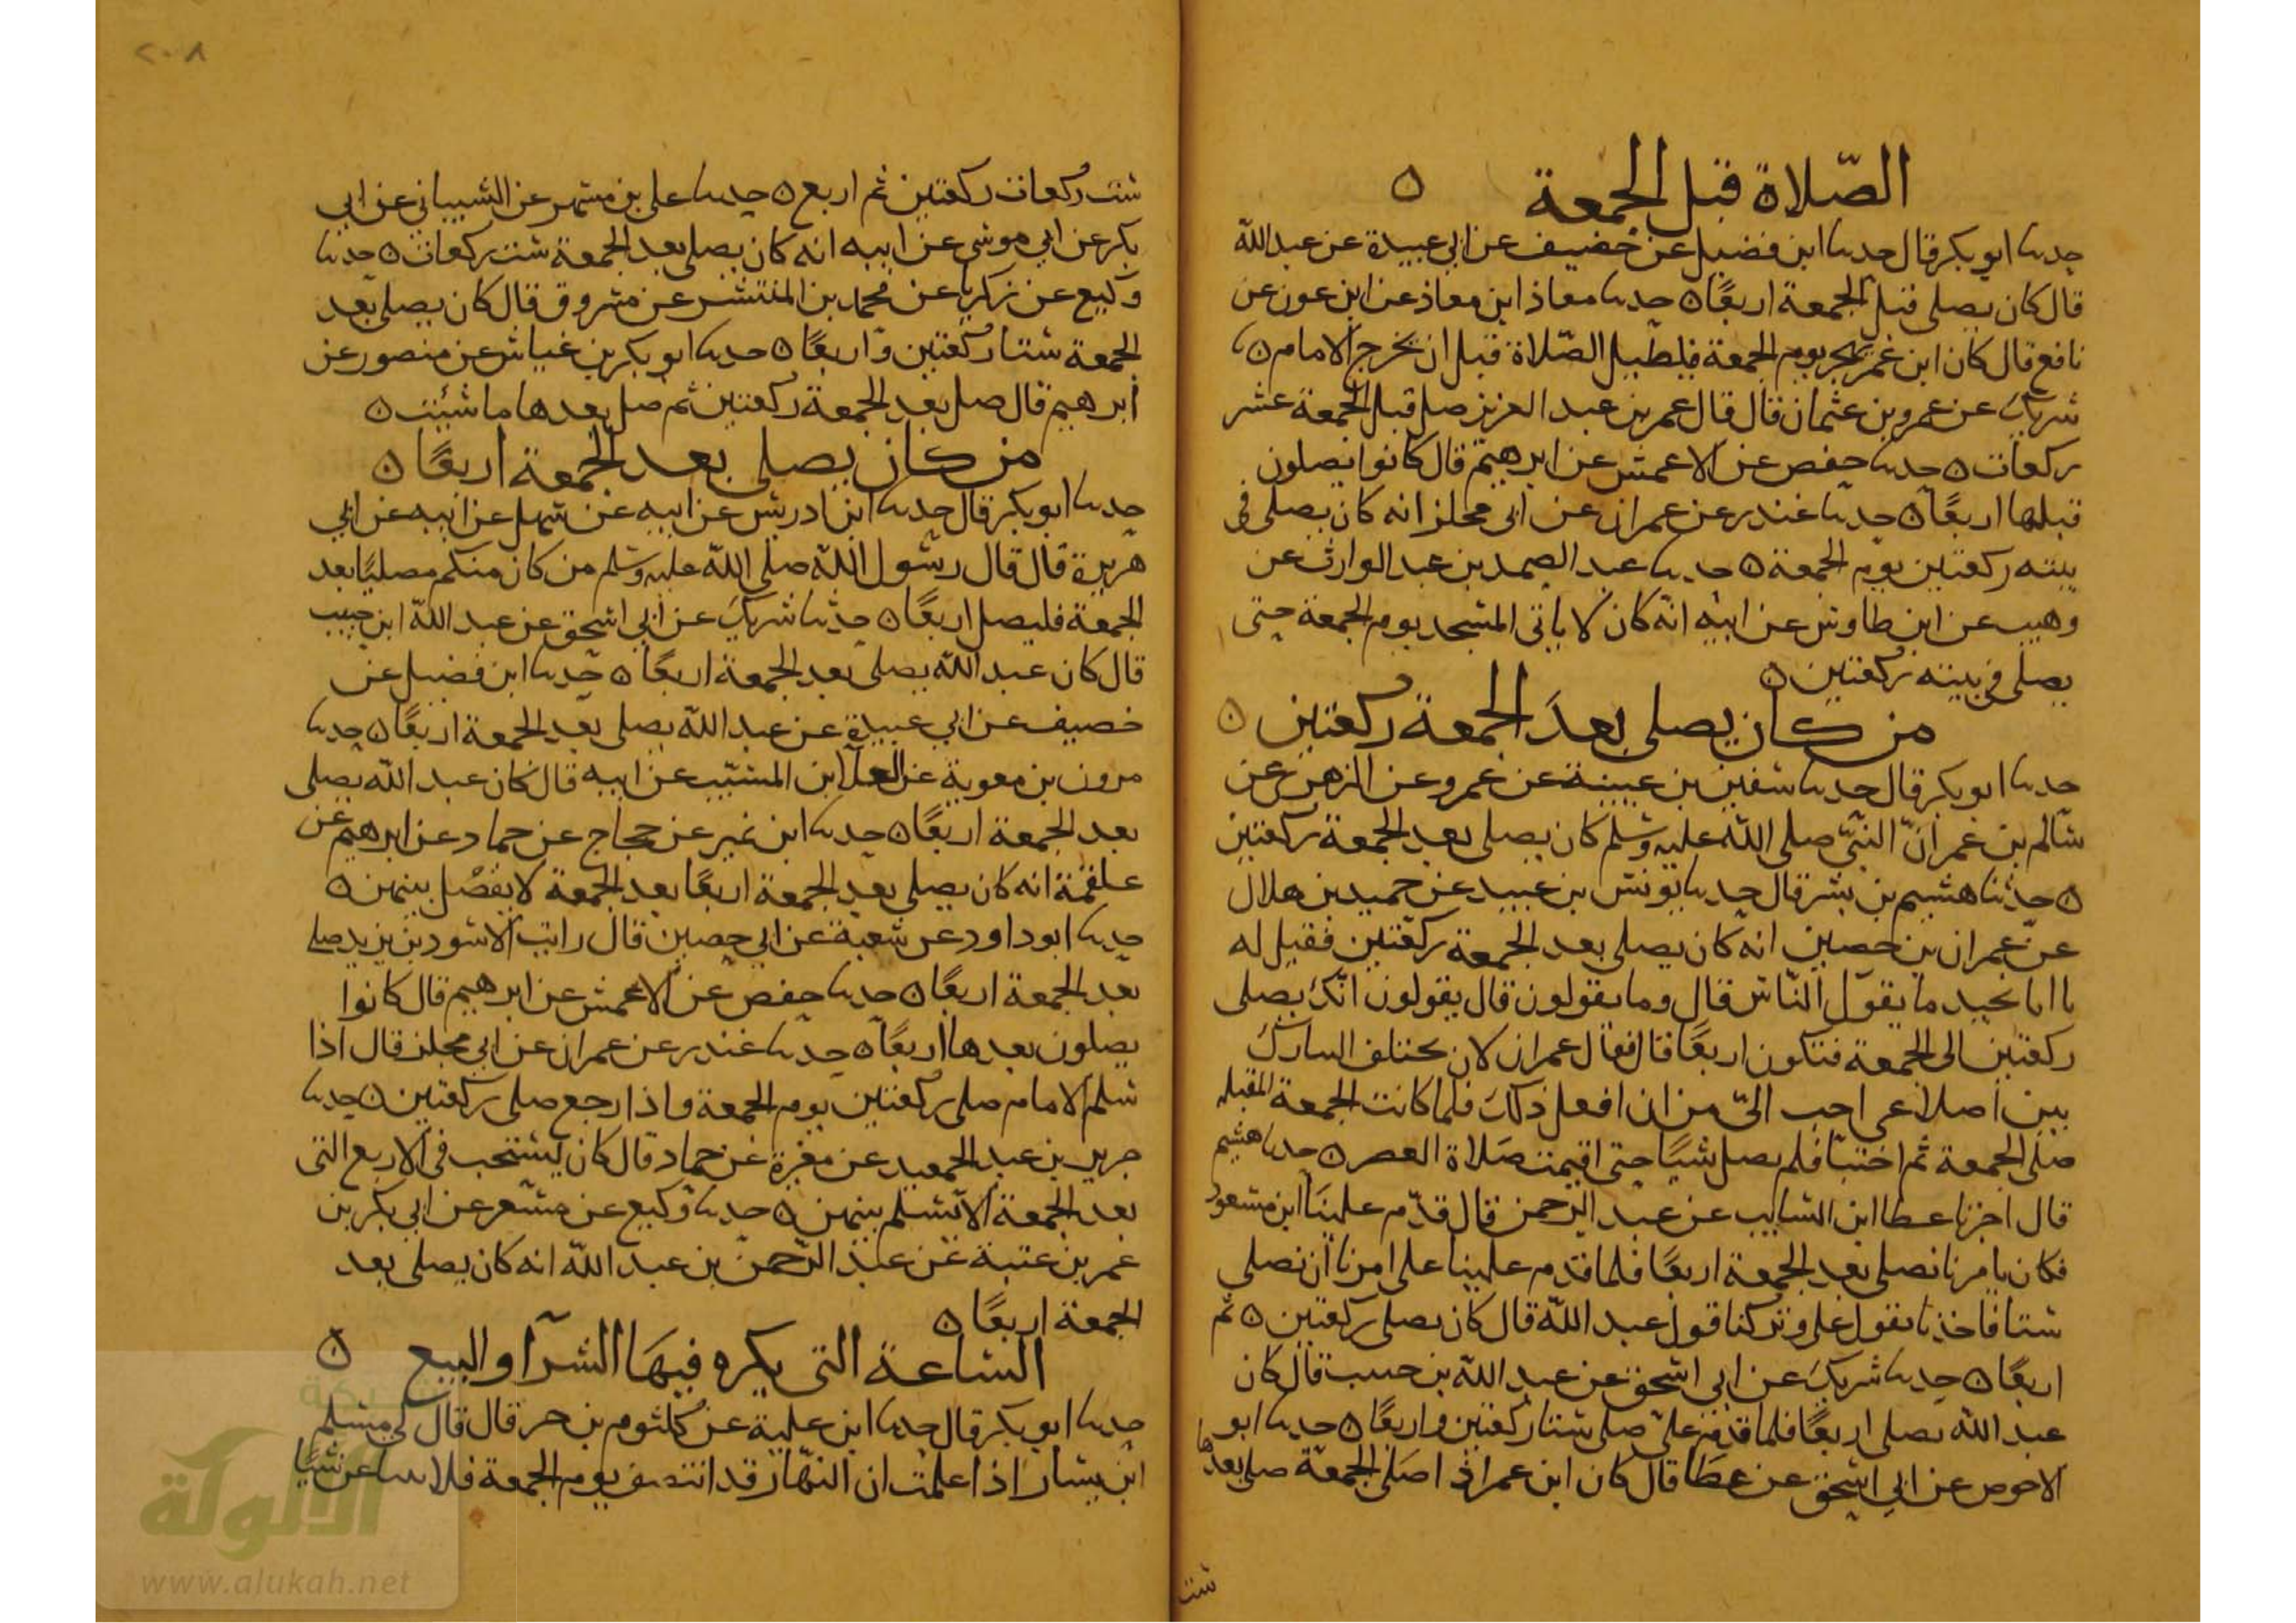 الصّلاة قبل الجمعة ٥
حدثنا ابو بكر قال حدثنا ابن فضيل عن خضيف عن ابي عبيدة عن عبد الله
قال كان يصلى قبل الجمعة اربعًا ٥ حدثنا معاذ ابن معاذ عن ابن عون عن
نافع قال كان ابن عمر يهجر يوم الجمعة فيطيل الصّلاة قبل ان يخرج الامام ٥
شريك عن عمرو بن عثمان قال قال عمر بن عبد العزيز صل قبل الجمعة عشر
ركعات ٥ حدثنا حفص عن الاعمش عن ابرهيم قال كانوا يصلون
قبلها اربعًا ٥ حدثنا غندر عن عمران عن ابى مجلز انه كان يصلى فى
بيته ركعتين يوم الجمعة ٥ حدثنا عبد الصمد بن عبد الوارث عن
وهيب عن ابن طاوس عن ابيه انّه كان لا ياتى المسجد يوم الجمعة حتى
يصلى فى بيته ركعتين ٥
من كان يصلى بعدَ الجمعة ركعتين ٥
حدثنا ابو بكر قال حدثنا سفين بن عيينة عن عمرو عن الزهرى عن
سالم بن عمر انّ النبىّ صلى الله عليه وسلم كان يصلى بعد الجمعة ركعتين
٥ حدثنا هشيم بن بشر قال حدثنا يونس بن عبيد عن حميد بن هلال
عن عمران بن حصين انه كان يصلى بعد الجمعة ركعتين فقيل له
يا ابا نجيد ما يقول الناس قال وما يقولون قال يقولون انّك يصلى
ركعتين الى الجمعة فتكون اربعًا قال فقال عمران لان تختلف
بين اضلاعى احب الىّ من ان افعل ذلك فلما كانت الجمعة المقبله
صلى الجمعة ثم احتبا فلم يصل شيًا حتى اقيمت صَلاة العصر ٥ حدثنا هشيم
قال اخبرنا عطا ابن السايب عن عبد الرحمن قال قدّم علينَا ابن مسعود
فكان يامرنا نصلى بعد الجمعة اربعًا فلما قدم علينا على امرنا ان نصلى
ستا فاخذنا بقول على وتركنا قول عبد الله قال كان يصلى ركعتين ٥ ثم
اربعًا ٥ حدثنا شريك عن ابى اسحق عن عبد الله بن حبيب قال كان
عبد الله يصلى اربعًا فلما قدم على صلى ستا ركعتين واربعًا ٥ حدثنا ابو
الاحوص عن ابى اسحق عن عطا قال كان ابن عمر اذا صلى الجمعة صلى بعدها
ست
٢٠٨
ست ركعات ركعتين ثم اربع ٥ حدثنا على بن مسهر عن الشيبانى عن ابى
بكر عن ابى موسى عن ابيه انه كان يصلى بعد الجمعة ست ركعات ٥ حدثنا
وكيع عن زكريا عن محمد بن المنتشر عن مسروق قال كان يصلى بعد
الجمعة ستا ركعتين واربعًا ٥ حدثنا ابو بكر بن عياش عن منصور عن
ابرهيم قال صل بعد الجمعة ركعتين ثم صل بعدها ما شئت ٥
من كان يصلى بعد الجمعة اربعًا ٥
حدثنا ابو بكر قال حدثنا ابن ادريس عن ابيه عن سهل عن ابيه عن ابى
هريرة قال قال رسول الله صلى الله عليه وسلم من كان منكم مصليًا بعد
الجمعة فليصل اربعًا ٥ حدثنا شريك عن ابى اسحق عن عبد الله ابن حبيب
قال كان عبد الله يصلى بعد الجمعة اربعًا ٥ حدثنا ابن فضيل عن
خصيف عن ابى عبيدة عن عبد الله يصلى بعد الجمعة اربعًا ٥ حدثنا
مرون بن معوية عن العلا ابن المسيّب عن ابيه قال كان عبد الله يصلى
بعد الجمعة اربعًا ٥ حدثنا ابن نمير عن حجاج عن حماد عن ابرهيم عن
علقمة انه كان يصلى بعد الجمعة اربعًا بعد الجمعة لا يفصل بينهن ٥
حدثنا ابو داود عن شعبة عن ابى حصين قال رايت الاسود بن يزيد صلى
بعد الجمعة اربعًا ٥ حدثنا حفص عن الاعمش عن ابرهيم قال كانوا
يصلون بعدها اربعًا ٥ حدثنا غندر عن عمران عن ابى مجلز قال اذا
سلم الامام صلى ركعتين يوم الجمعة واذا رجع صلى ركعتين ٥ حدثنا
جرير بن عبد الحميد عن مغيرة عن حماد قال كان يستحب فى الاربع التى
بعد الجمعة الا تسلم بينهن ٥ حدثنا وكيع عن مسعر عن ابى بكر بن
عمر بن عتبة عن عبد الرّحمن بن عبد الله انه كان يصلى بعد
الجمعة اربعًا ٥
الساعة التى يكره فيهَا الشرآ والبيع ٥
حدثنا ابو بكر قال حدثنا ابن علية عن كلثوم بن جبر قال قال لى مسلم
ابن يسار اذا علمت ان النهار قد انتصف يوم الجمعة فلا شيًا
شبكة
الألوكة
www.alukah.net